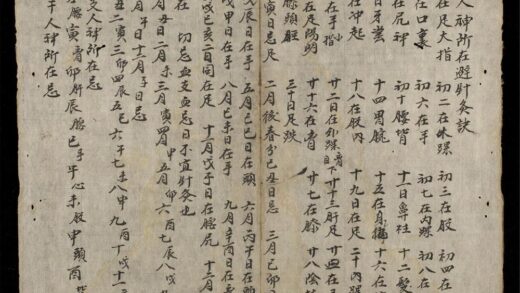 人神所在避針灸訣
在足大指 初二在外踝 初三在股 初四在
在口裏 初六在手 初七在內踝 初八在
在尻神 初十腰背 十一日鼻柱 十二髮
日牙齒 十四胃脘 十五在身 十六在
在冲起 十八在股內 十九日在足 二十內踝
在手指 廿二日在外踝 廿三肝足 廿四在
在足陽明 廿六在 廿七在膝 廿八陰
膝頸脛 三十日足趺
寅日忌足 二月後春分己丑日忌 三月己卯日
戊辰日在手 五月己巳日在頭 六月丙午日在
戊甲日在手 八月己未日在手 九月辛酉日在
戊己亥二日同在足 十月戊子日在腰尻 十二月
在 切忌血支血忌日不宜針灸也
月丑日二月未三月寅四月申五月卯六酉七辰八戌
月午日十二月子日忌
丑二寅三卯四辰五巳六午七未八申九酉十戌十一
支人神所在忌
腰寅胸卯肝辰腰巳手午心未股申頭酉背
干人神所在忌